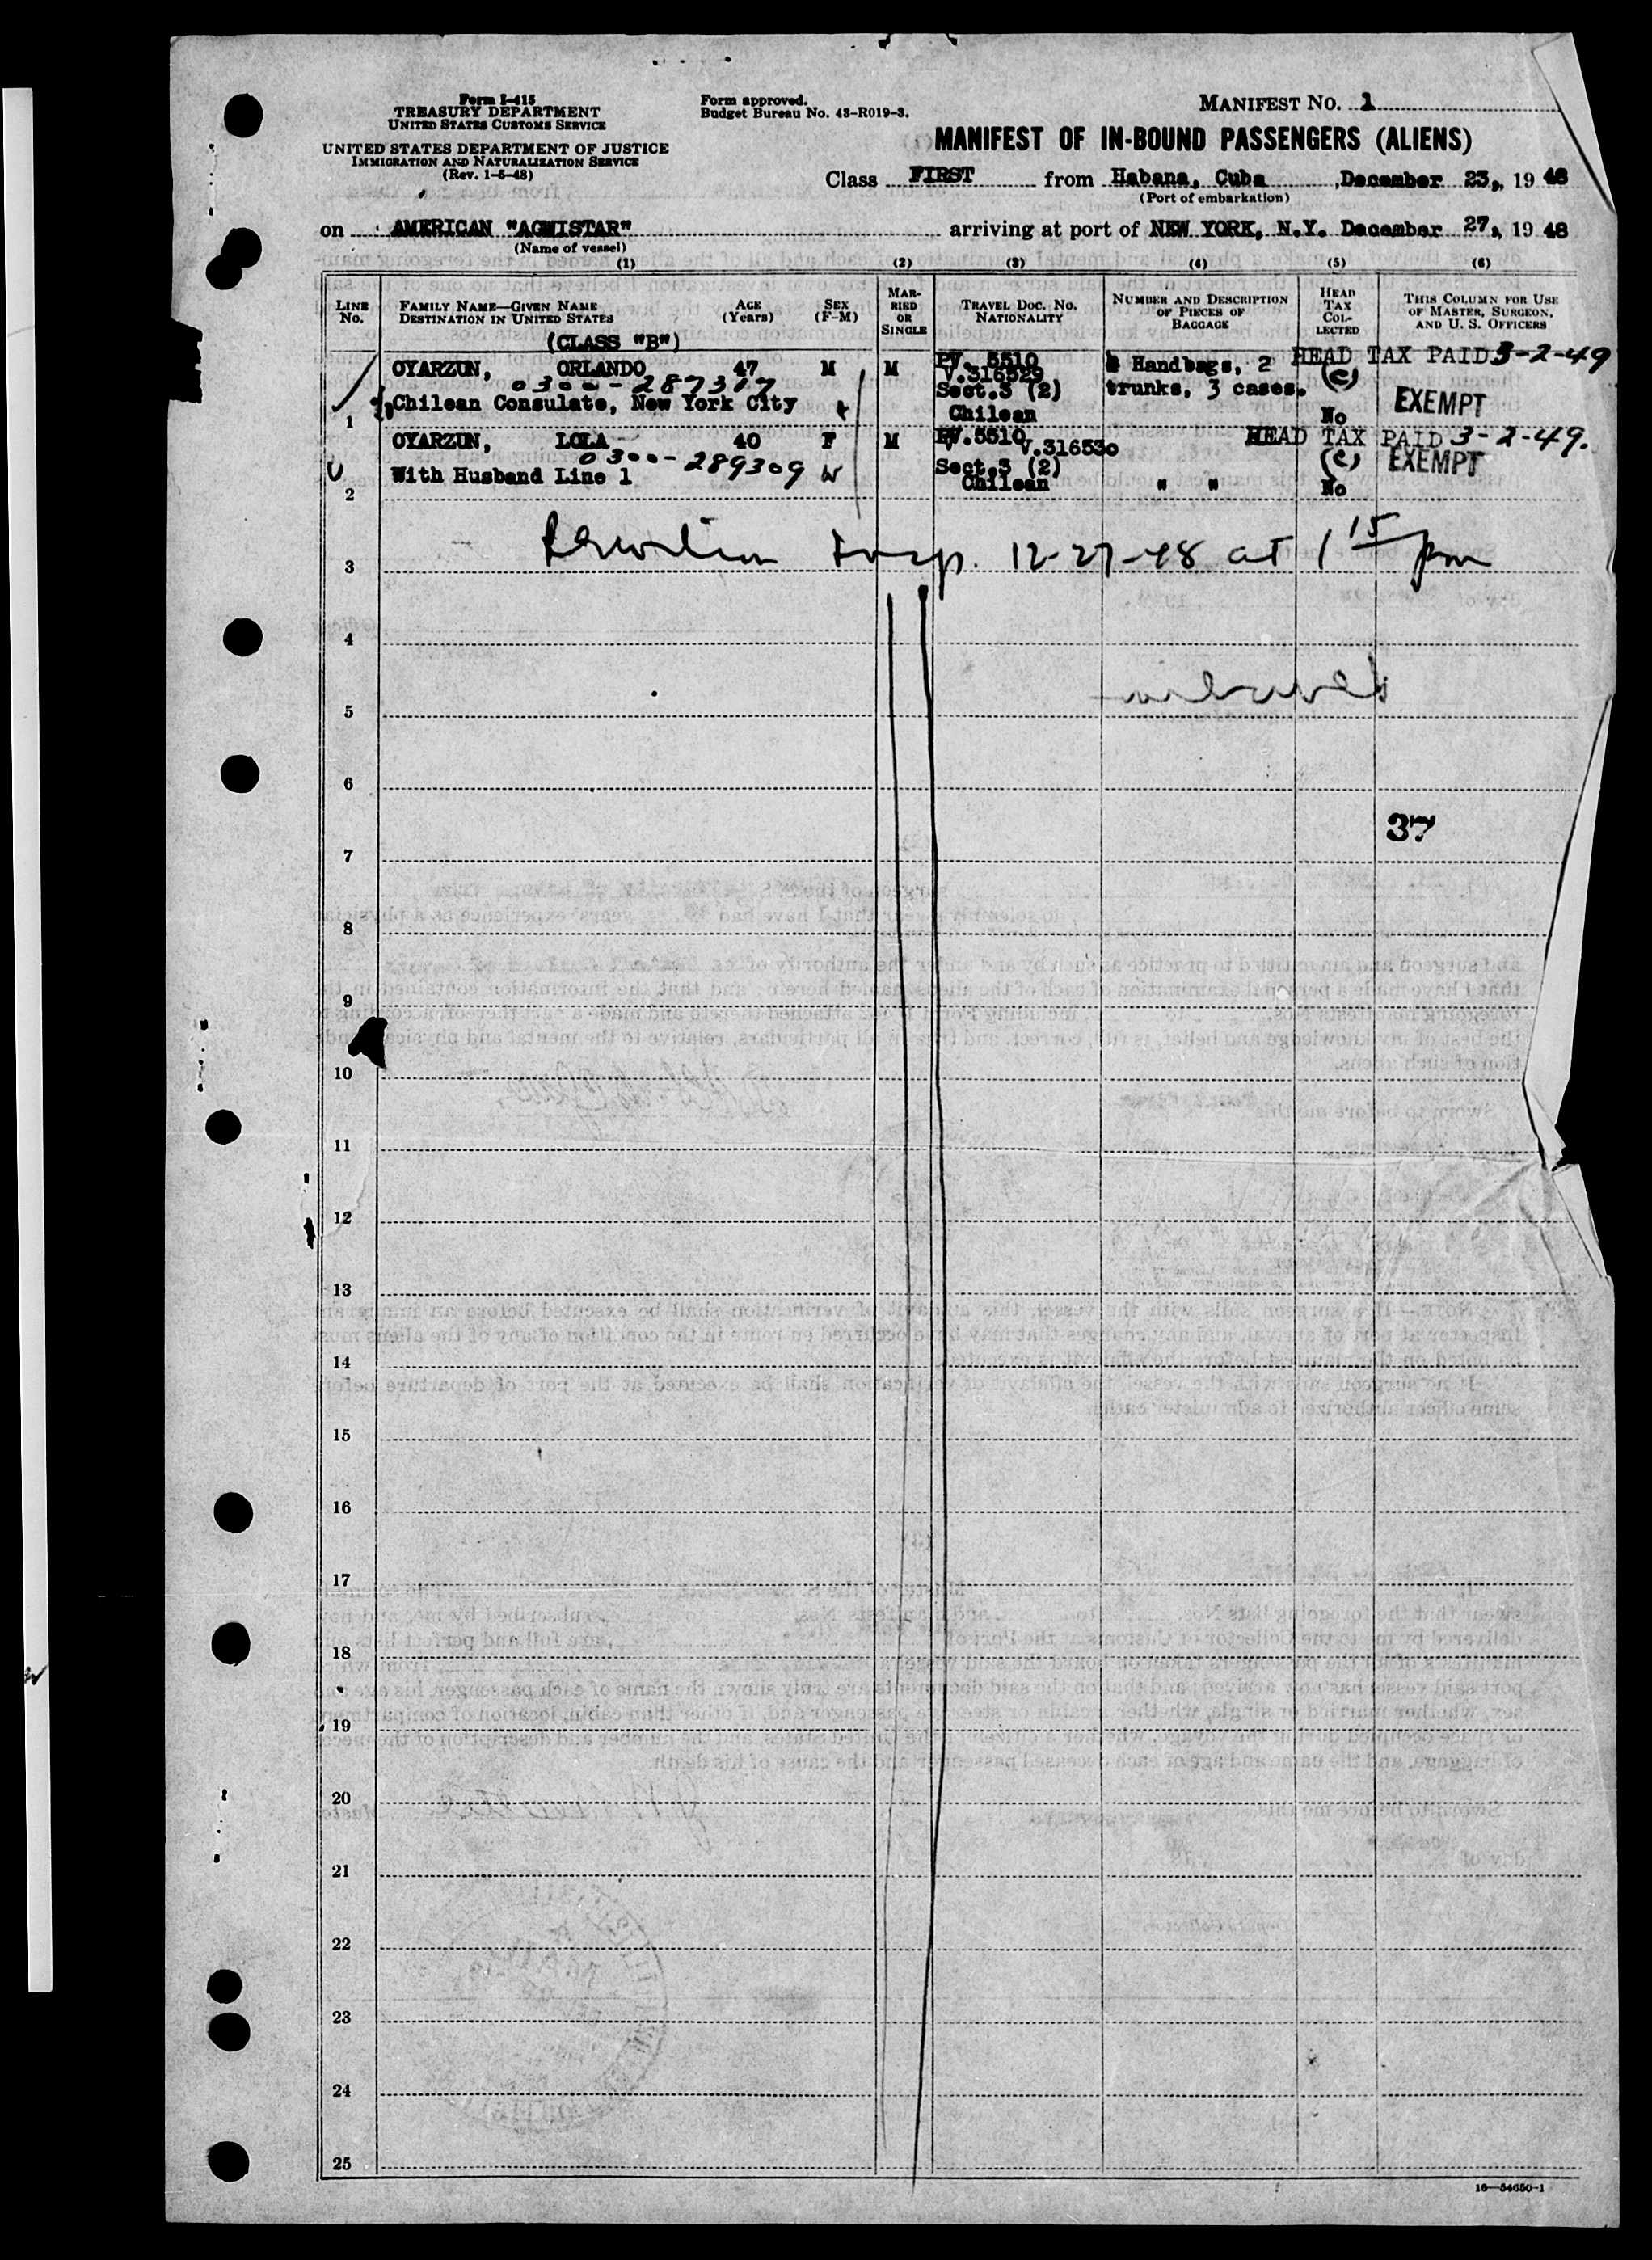 Form I-415
TREASURY DEPARTMENT
UNITED STATES CUSTOMS SERVICE
UNITED STATES DEPARTMENT OF JUSTICE
IMMIGRATION AND NATURALIZATION SERVICE
(Rev. 1-5-48)
Form approved.
Budget Bureau No. 43-R019-3.
MANIFEST NO. 1
MANIFEST OF IN-BOUND PASSENGERS (ALIENS)
Class FIRST from Habana, Cuba, December 23, 1948
(Port of embarkation)
on AMERICAN "AGWISTAR" arriving at port of NEW YORK, N.Y. December 27, 1948
(Name of vessel)
(1) (2) (3) (4) (5) (6)
LINE No.
FAMILY NAME—GIVEN NAME
DESTINATION IN UNITED STATES
AGE (Years)
SEX (F-M)
MARRIED OR SINGLE
TRAVEL DOC. NO. NATIONALITY
NUMBER AND DESCRIPTION OF PIECES OF BAGGAGE
HEAD TAX COLLECTED
THIS COLUMN FOR USE OF MASTER, SURGEON, AND U. S. OFFICERS
(CLASS "B")
OYARZUN, ORLANDO 47 M M PV. 5510 Handbags, 2 HEAD TAX PAID 3-2-49
0300-287307 V.316529 (C)
Sect.3 (2) trunks, 3 cases.
1 Chilean Consulate, New York City Chilean No EXEMPT
OYARZUN, LOLA 40 F M PV.5510 HEAD TAX PAID 3-2-49.
0300-289309 V.316530 (C) EXEMPT
With Husband Line 1 W Sect.3 (2)
2 Chilean " " No
3 Insp. 12-27-48 at 1 15 pm
4
5
6
37
7
8
9
10
11
12
13
14
15
16
17
18
19
20
21
22
23
24
25
16—54650-1